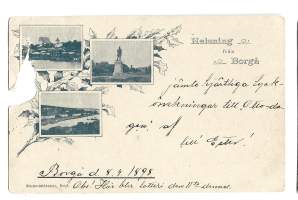 Helsning
från
Borgå
jämte hjärtliga lyck-
önskningar till
dagen! af
Borgå d. 8.4 1898.
Obs! Här blir lotteri den 11te dennes.